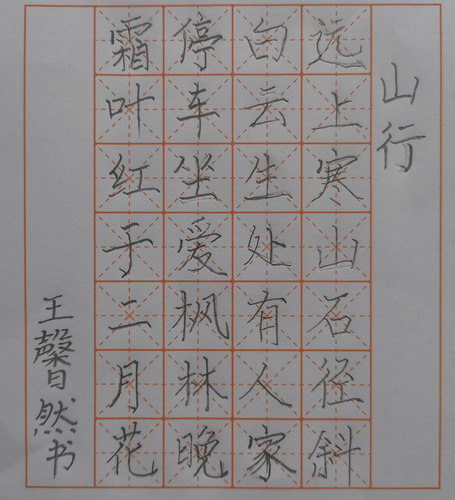 山行
远上寒山石径斜
白云生处有人家
停车坐爱枫林晚
霜叶红于二月花
王馨然书